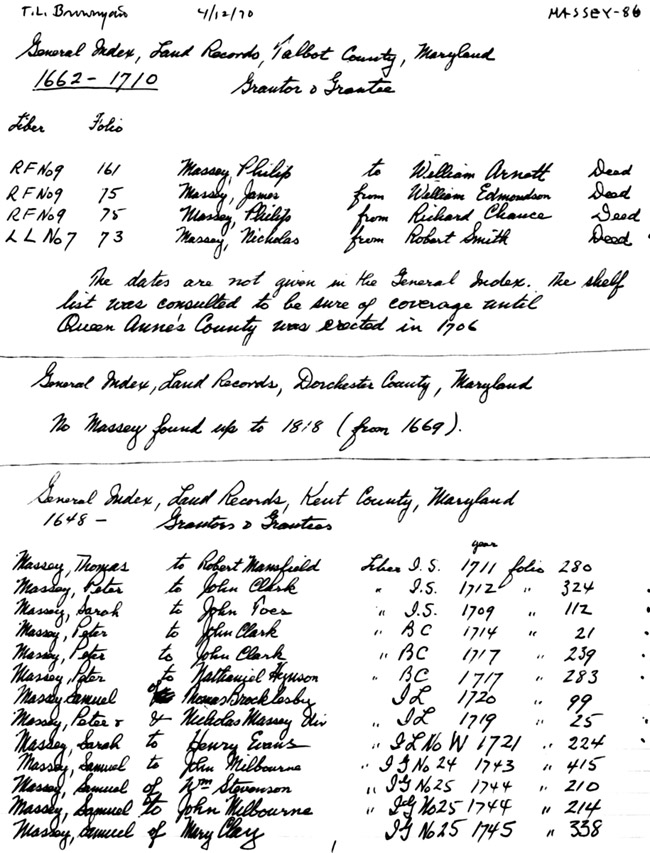 T.L. Brownyard 4/12/70 MASSEY-86
General Index, Land Records, Talbot County, Maryland
1662 - 1710 Grantor & Grantee
Liber Folio
RF No9 161 Massey, Philip to William Arnott Deed
RF No9 75 Massey, James from William Edmondson Deed
RF No9 75 Massey, Philip from Richard Chance Deed
LL No7 73 Massey, Nicholas from Robert Smith Deed
The dates are not given in the General Index. The shelf
list was consulted to be sure of coverage until
Queen Anne's County was erected in 1706
General Index, Land Records, Dorchester County, Maryland
No Massey found up to 1818 (from 1669).
General Index, Land Records, Kent County, Maryland
1648 - Grantors & Grantees
year
Massey, Thomas to Robert Mansfield Liber I.S. 1711 folio 280
Massey, Peter to John Clark " I.S. 1712 " 324
Massey, Sarah to John " I.S. 1709 " 112
Massey, Peter to John Clark " BC 1714 " 21
Massey, Peter to John Clark " BC 1717 " 239
Massey, Peter to Nathaniel Hynson " BC 1717 " 283
Massey Samuel of Thomas Brocklesby IL 1720 " 99
Massey, Peter & Nicholas Massey Div " IL 1719 " 25
Massey, Sarah to Henry Evans " IL No W 1721 " 224
Massey, Samuel to John Milbourne " IG No 24 1743 " 415
Massey, Samuel of Wm Stevenson " IG No25 1744 " 210
Massey, Samuel to John Milbourne " IG No25 1744 " 214
Massey, Samuel of Mary Clay " IG No25 1745 " 338